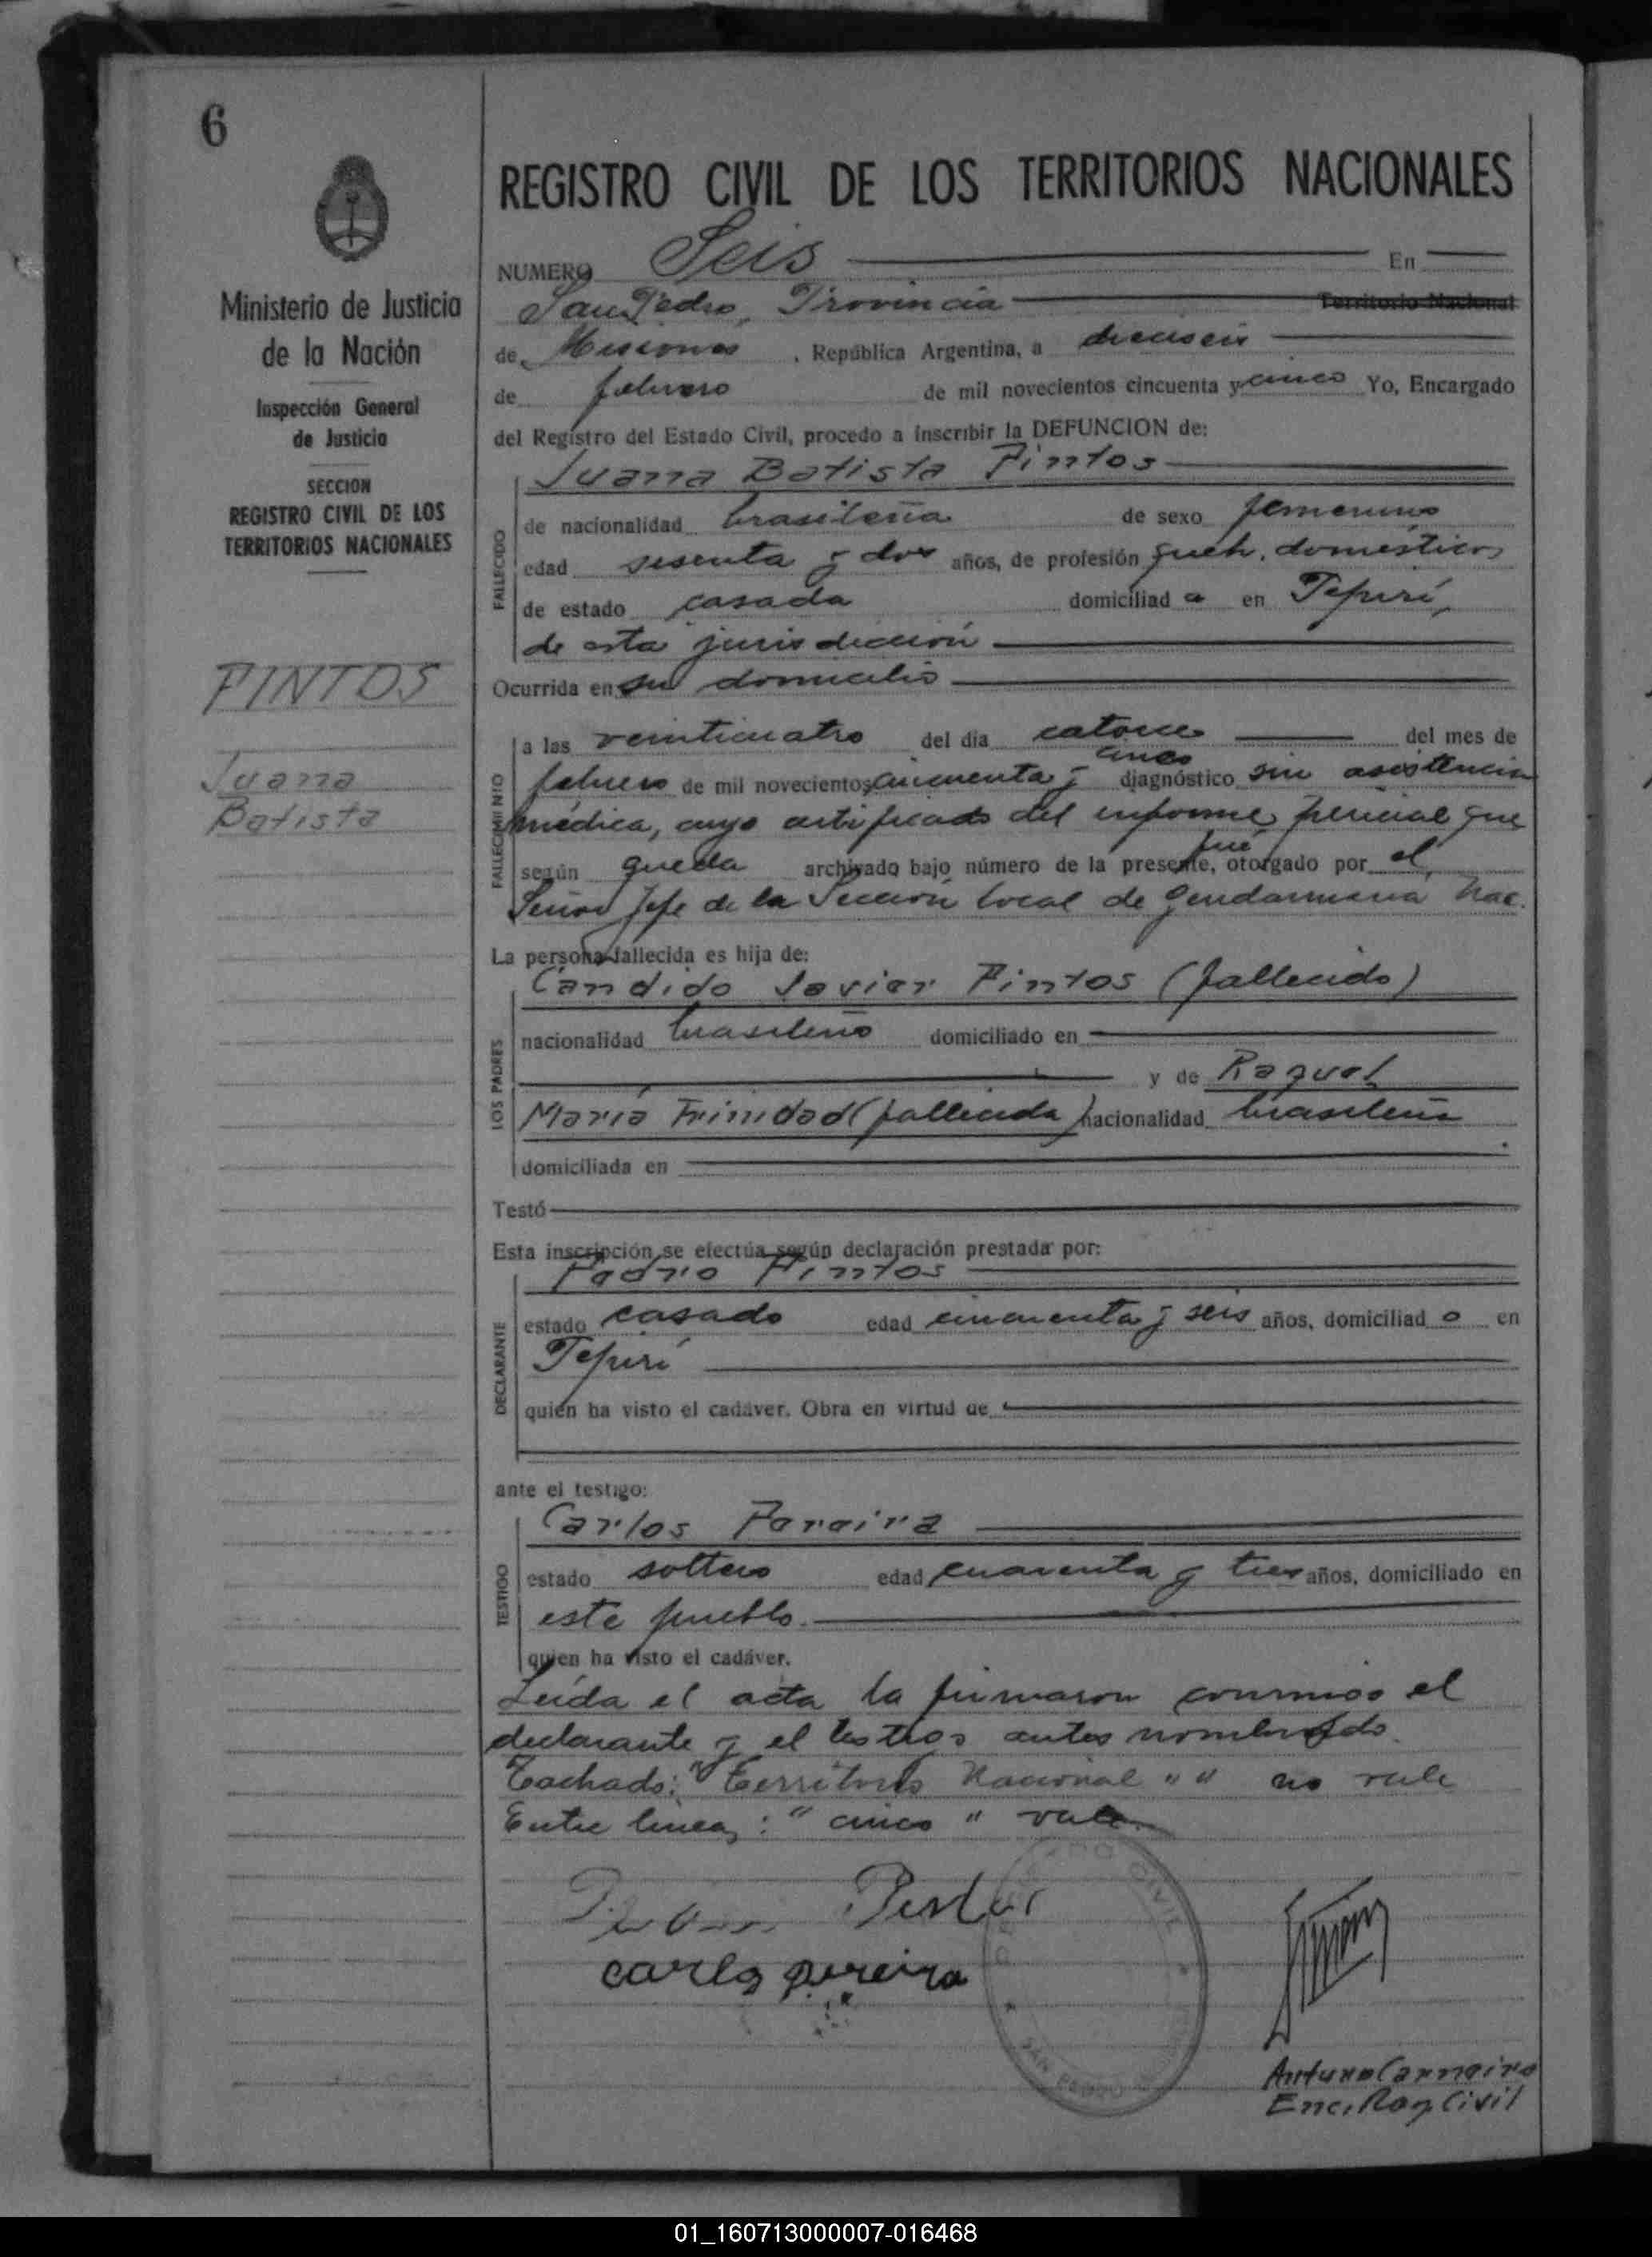 6
Ministerio de Justicia
de la Nación
Inspección General
de Justicia
SECCION
REGISTRO CIVIL DE LOS
TERRITORIOS NACIONALES
PINTOS
Juana
Batista
REGISTRO CIVIL DE LOS TERRITORIOS NACIONALES
NUMERO Seis En
San Pedro, Provincia Territorio Nacional
de Misiones, República Argentina, a dieciseis
de febrero de mil novecientos cincuenta y cinco Yo, Encargado
del Registro del Estado Civil, procedo a inscribir la DEFUNCION de:
FALLECIDO
Juana Batista Pintos
de nacionalidad brasileña de sexo femenino
edad sesenta y dos años, de profesión queh. domésticos
de estado casada domiciliad a en Pepirí,
de esta jurisdicción
Ocurrida en su domicilio
FALLECIMIENTO
a las veinticuatro del día catorce del mes de
cinco
febrero de mil novecientos cincuenta y diagnóstico sin asistencia
médica, cuyo certificado del informe pericial que
fué
según queda archivado bajo número de la presente, otorgado por el
Señor Jefe de la Sección local de Gendarmería Nac.
La persona fallecida es hija de:
LOS PADRES
Candido Javier Pintos (fallecido)
nacionalidad brasileño domiciliado en
y de Raquel
María Trinidad (fallecida) nacionalidad brasileña
domiciliada en
Testó
Esta inscripción se efectúa según declaración prestada por:
DECLARANTE
Pedro Pintos
estado casado edad cincuenta y seis años, domiciliad o en
Pepirí
quién ha visto el cadáver. Obra en virtud de
ante el testigo:
TESTIGO
Carlos Pereira
estado soltero edad cuarenta y tres años, domiciliado en
este pueblo.
quien ha visto el cadáver.
Leída el acta la firmaron conmigo el
declarante y el testigo antes nombrado.
Tachado: "Territorio Nacional" " no vale
Entre lineas: "cinco" vale.
carlos pereira
REGISTRO CIVIL
SAN PEDRO
Arturo Carneiro
Enc. Reg Civil
01_160713000007-016468